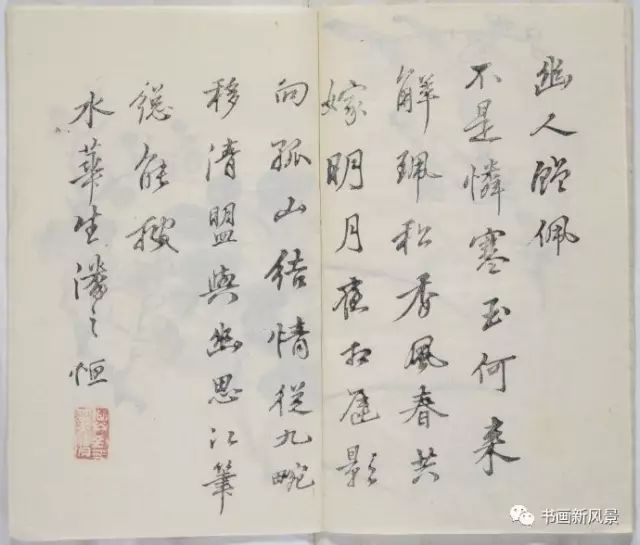 幽人佩
不是憐寒玉何來
解珮香風春共
嫁明月夜相影
向孤山結情從九畹
移清盟與幽思江筆
總能披
水華生潘之恒
书画新风景